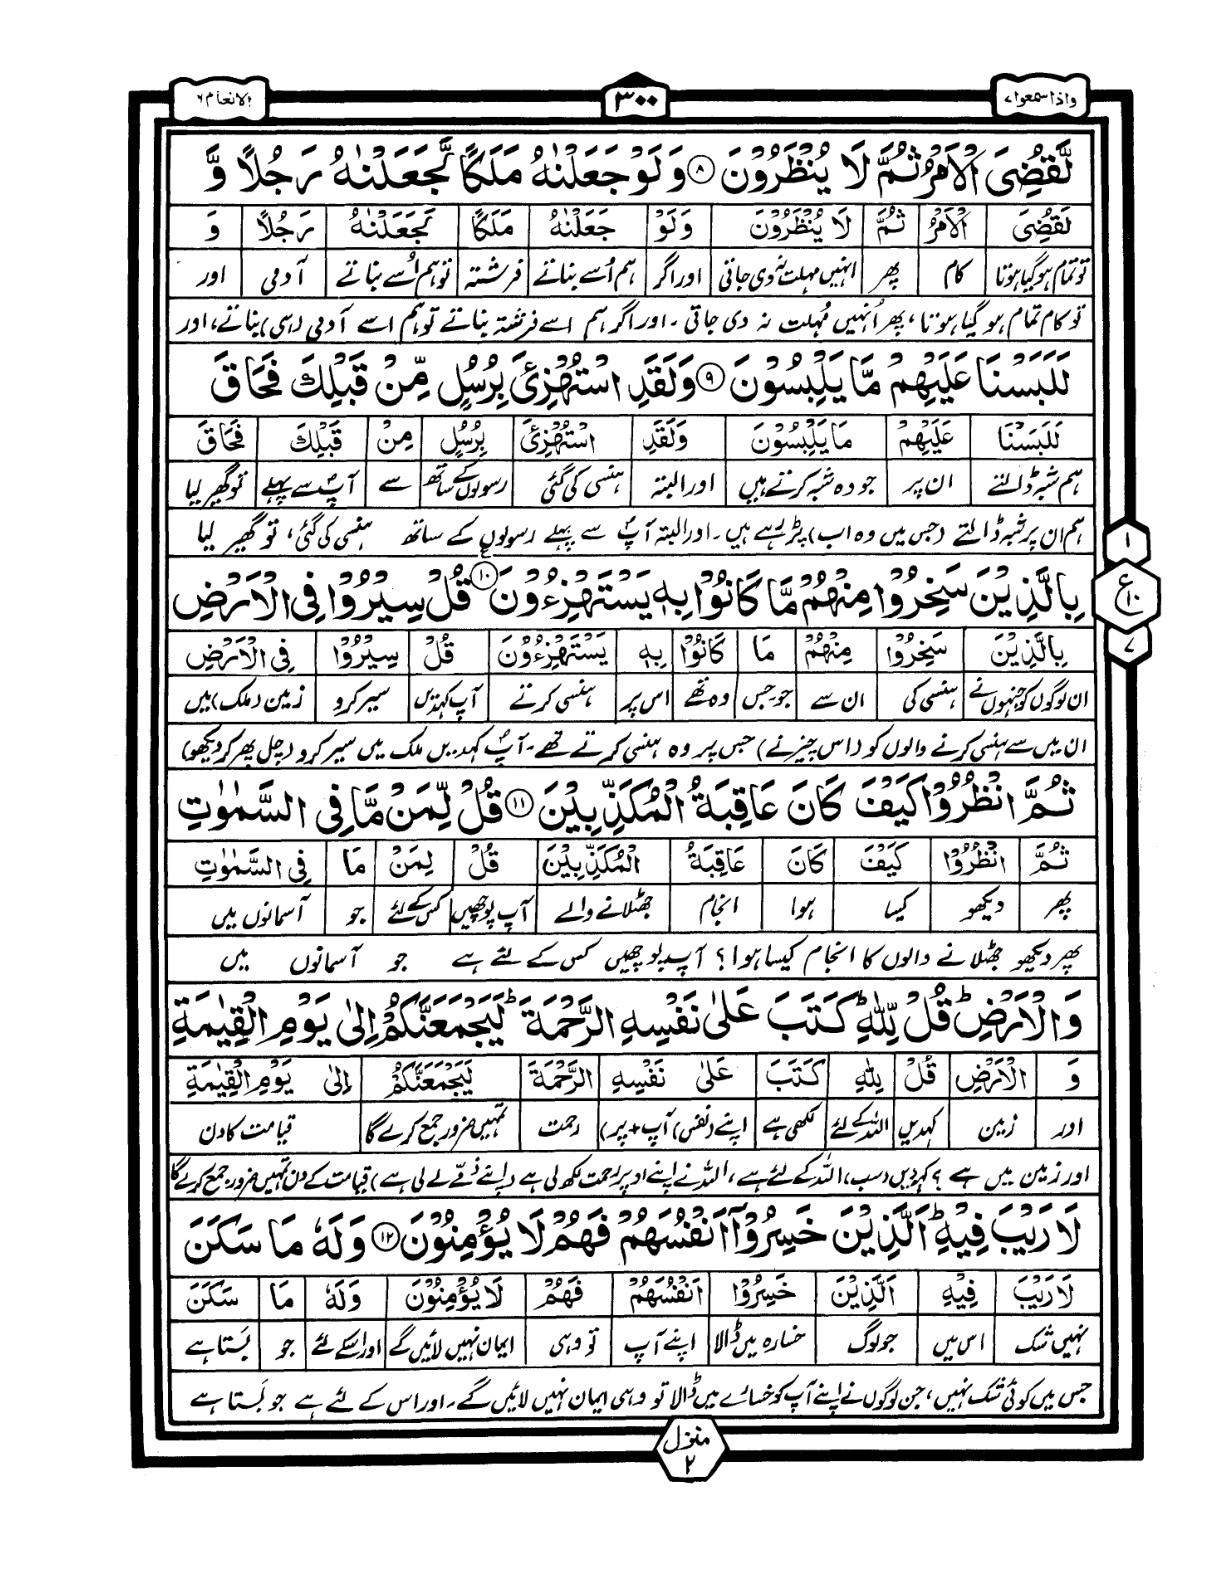 واذا سمعوا ٧
٣٠٠
الانعام ٦
لَّقُضِيَ الْاَمْرُ ثُمَّ لَا يُنْظَرُوْنَ ۝٨ وَلَوْ جَعَلْنٰهُ مَلَكًا لَّجَعَلْنٰهُ رَجُلًا وَّ
لَقُضِيَ الْاَمْرُ ثُمَّ لَا يُنْظَرُوْنَ وَلَوْ جَعَلْنٰهُ مَلَكًا لَّجَعَلْنٰهُ رَجُلًا وَّ
تو تمام ہوگیا ہوتا کام پھر انہیں مہلت نہ دی جاتی اور اگر ہم اُسے بناتے فرشتہ تو ہم اُسے بناتے آدمی اور
تو کام تمام ہو گیا ہوتا، پھر اُنہیں مُہلت نہ دی جاتی ۔ اور اگر ہم اسے فرشتہ بناتے تو ہم اسے آدمی (ہی) بناتے، اور
لَلَبَسْنَا عَلَيْهِمْ مَّا يَلْبِسُوْنَ ۝٩ وَلَقَدِ اسْتُهْزِئَ بِرُسُلٍ مِّنْ قَبْلِكَ فَحَاقَ
لَلَبَسْنَا عَلَيْهِمْ مَا يَلْبِسُوْنَ وَلَقَدِ اسْتُهْزِئَ بِرُسُلٍ مِنْ قَبْلِكَ فَحَاقَ
ہم شبہ ڈالتے ان پر جو وہ شبہ کرتے ہیں اور البتہ ہنسی کی گئی رسولوں کے ساتھ سے آپؐ سے پہلے تو گھیر لیا
ہم ان پر شبہ ڈالتے (جس میں وہ اب) پڑ رہے ہیں ۔ اور البتہ آپؐ سے پہلے رسولوں کے ساتھ ہنسی کی گئی، تو گھیر لیا
بِالَّذِيْنَ سَخِرُوْا مِنْهُمْ مَّا كَانُوْا بِهٖ يَسْتَهْزِءُوْنَ ۝١٠ ع قُلْ سِيْرُوْا فِى الْاَرْضِ
بِالَّذِيْنَ سَخِرُوْا مِنْهُمْ مَا كَانُوْا بِهٖ يَسْتَهْزِءُوْنَ قُلْ سِيْرُوْا فِى الْاَرْضِ
ان لوگوں کو جنہوں نے ہنسی کی ان سے جو جس وہ تھے اس پر ہنسی کرتے آپ کہدیں سیر کرو زمین (ملک) میں
ان میں سے ہنسی کرنے والوں کو (اس چیز نے) جس پر وہ ہنسی کرتے تھے ۔ آپؐ کہدیں ملک میں سیر کرو (چل پھر کر دیکھو)
١
ع
١٠
٧
ثُمَّ انْظُرُوْا كَيْفَ كَانَ عَاقِبَةُ الْمُكَذِّبِيْنَ ۝١١ قُلْ لِّمَنْ مَّا فِى السَّمٰوٰتِ
ثُمَّ انْظُرُوْا كَيْفَ كَانَ عَاقِبَةُ الْمُكَذِّبِيْنَ قُلْ لِمَنْ مَا فِى السَّمٰوٰتِ
پھر دیکھو کیسا ہوا انجام جھٹلانے والے آپ پوچھیں کس کے لئے جو آسمانوں میں
پھر دیکھو جھٹلانے والوں کا انجام کیسا ہوا؟ آپ پوچھیں کس کے لئے ہے جو آسمانوں میں
وَالْاَرْضِ ؕ قُلْ لِّلّٰهِ ؕ كَتَبَ عَلٰى نَفْسِهِ الرَّحْمَةَ ؕ لَيَجْمَعَنَّكُمْ اِلٰى يَوْمِ الْقِيٰمَةِ
وَ الْاَرْضِ قُلْ لِلّٰهِ كَتَبَ عَلٰى نَفْسِهِ الرَّحْمَةَ لَيَجْمَعَنَّكُمْ اِلٰى يَوْمِ الْقِيٰمَةِ
اور زمین کہدیں اللہ کے لئے لکھی ہے اپنے (نفس) آپ پر رحمت تمہیں ضرور جمع کرے گا قیامت کا دن
اور زمین میں ہے؟ کہدیں (سب) اللہ کے لئے ہے، اللہ نے اپنے اوپر رحمت لکھ لی ہے (اپنے ذمے لے لی ہے) قیامت کے دن تمہیں ضرور جمع کرے گا
لَا رَيْبَ فِيْهِ ؕ اَلَّذِيْنَ خَسِرُوْٓا اَنْفُسَهُمْ فَهُمْ لَا يُؤْمِنُوْنَ ۝١٢ وَلَهٗ مَا سَكَنَ
لَا رَيْبَ فِيْهِ اَلَّذِيْنَ خَسِرُوْا اَنْفُسَهُمْ فَهُمْ لَا يُؤْمِنُوْنَ وَلَهٗ مَا سَكَنَ
نہیں شک اس میں جو لوگ خسارہ میں ڈالا اپنے آپ تو وہی ایمان نہیں لائیں گے اور اسکے لئے جو بستا ہے
جس میں کوئی شک نہیں، جن لوگوں نے اپنے آپ کو خسارے میں ڈالا تو وہی ایمان نہیں لائیں گے ۔ اور اس کے لئے ہے جو بَستا ہے
منزل
٢